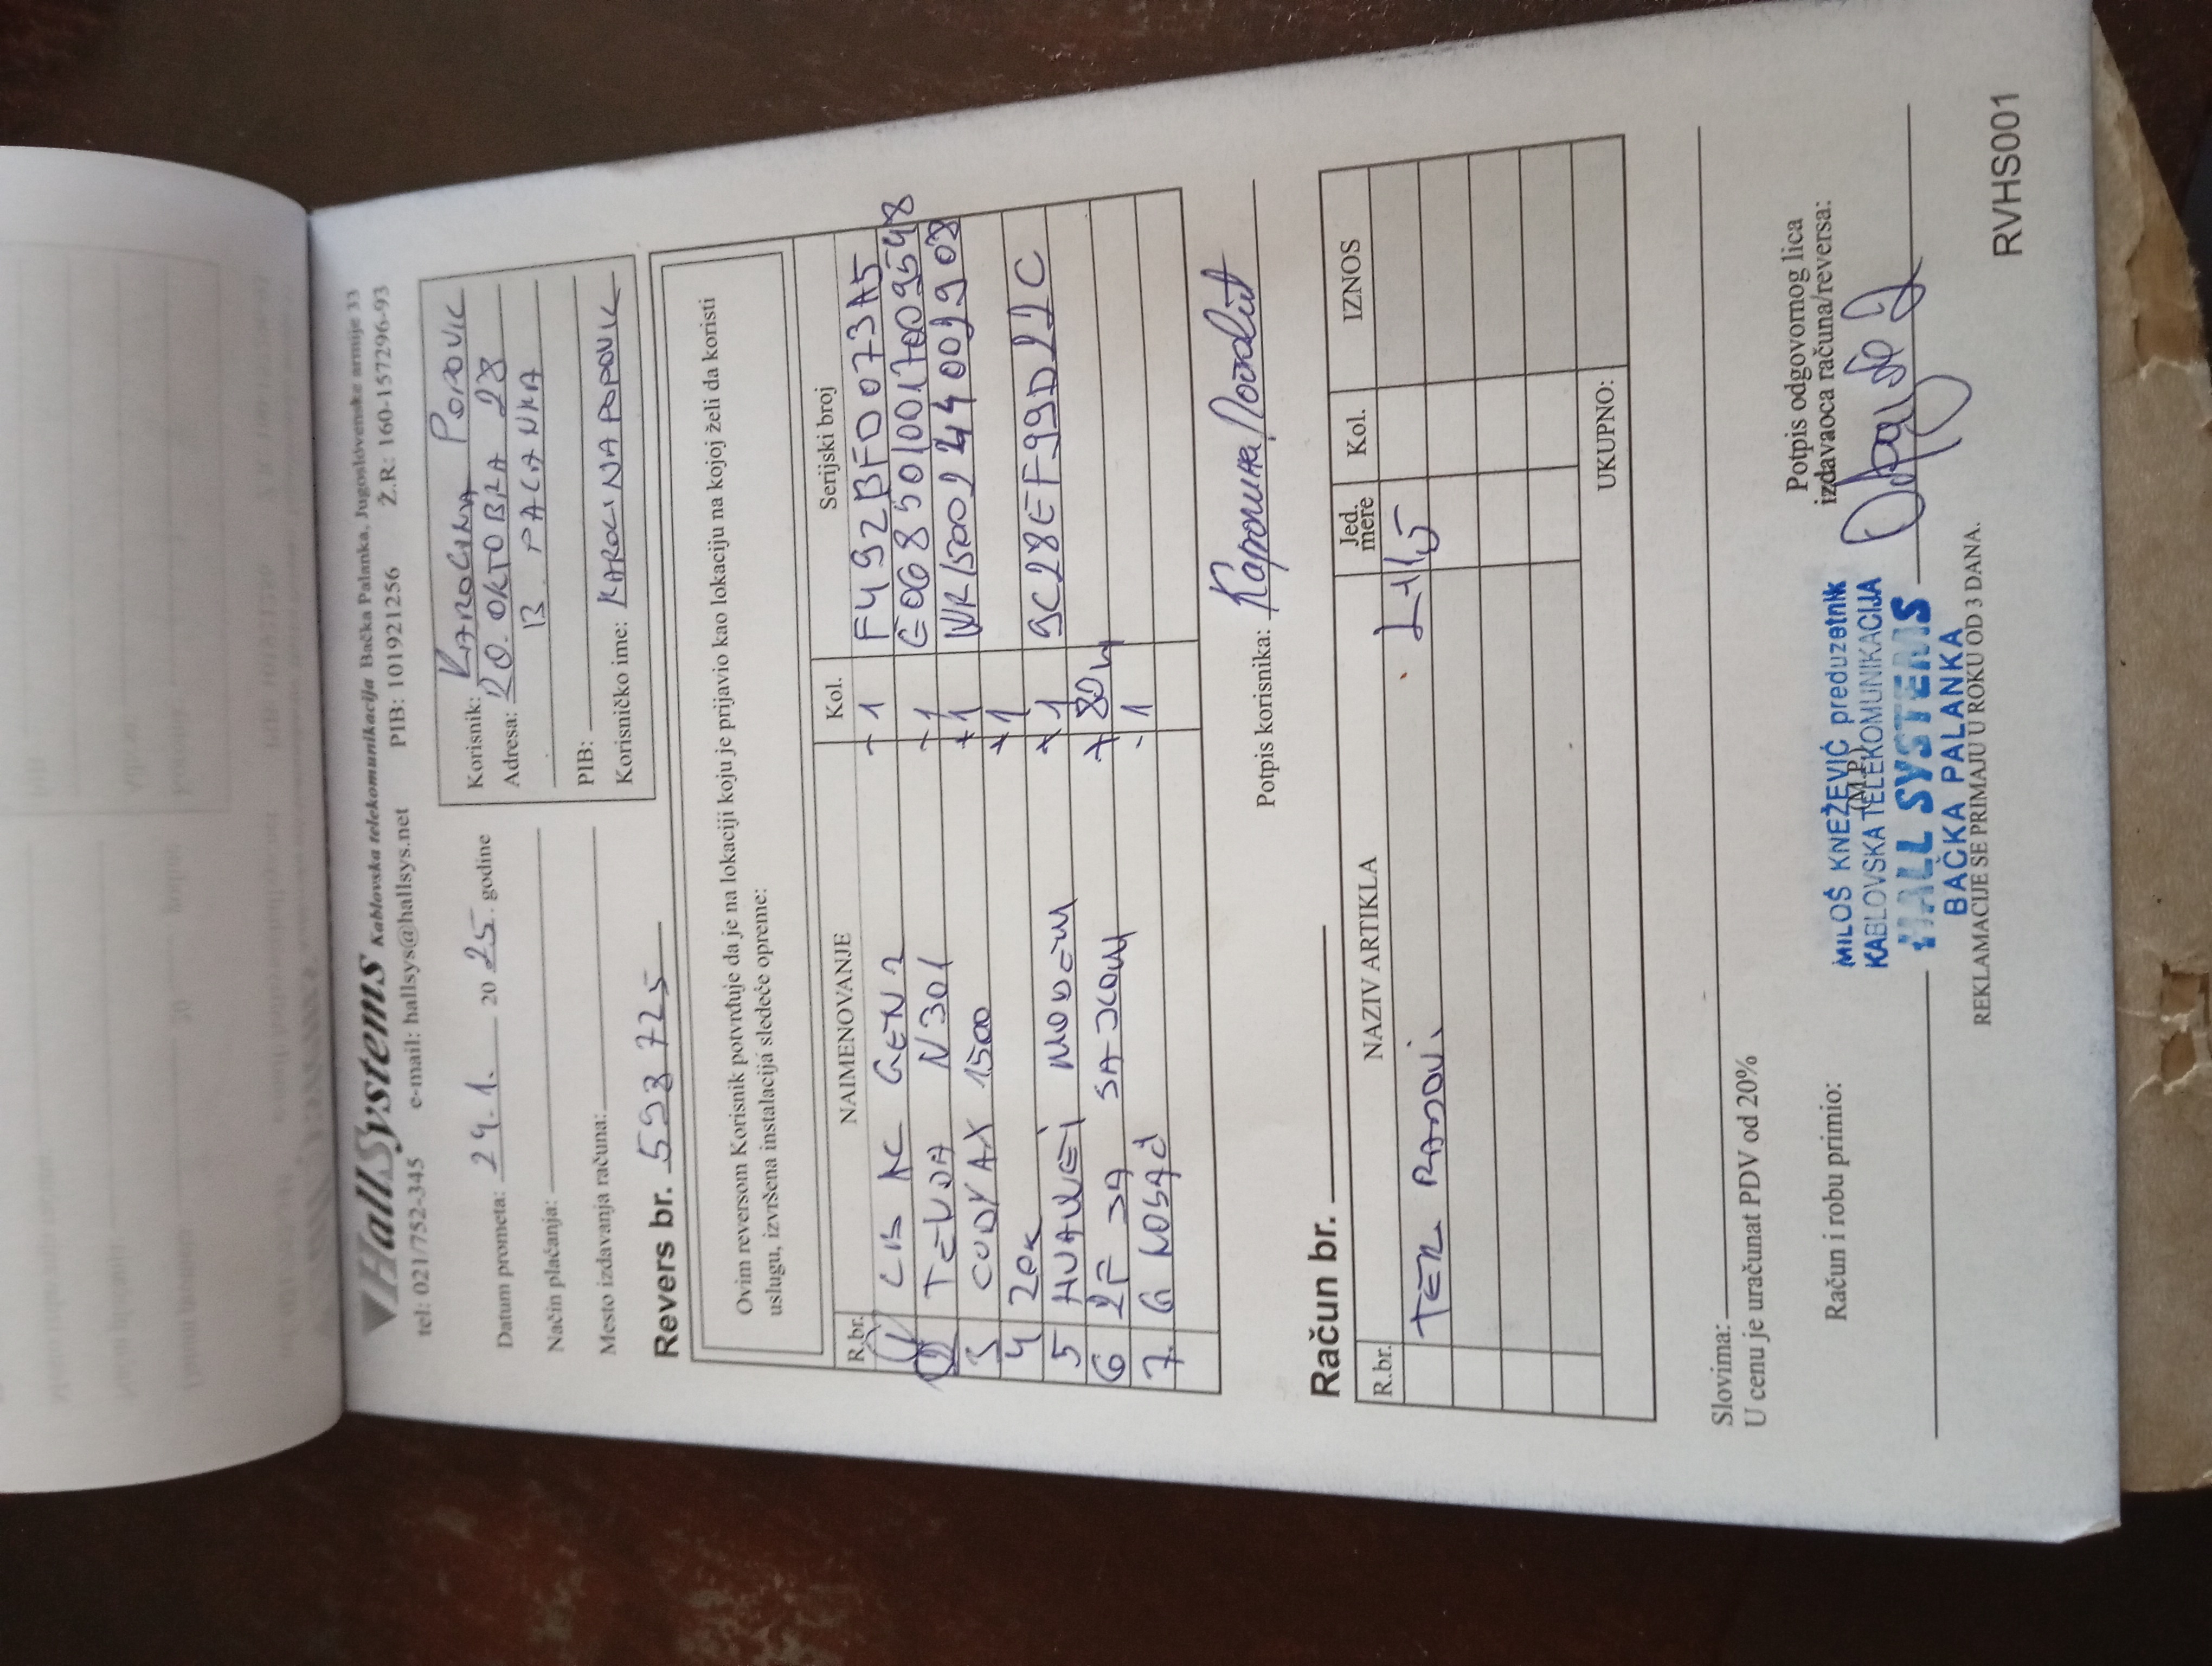 HallSystems Kablovska telekomunikacija Bačka Palanka, Jugoslovenske armije 33
tel: 021/752-345 e-mail: hallsys@hallsys.net PIB: 101921256 Ž.R: 160-157296-93
Datum prometa: 29.1. 20 25. godine
Način plaćanja:
Mesto izdavanja računa:
Korisnik: KAROLINA POPOVIC
Adresa: 20. OKTOBRA 28
B. PALANKA
PIB:
Korisničko ime: KAROLINAPOPOVIC
Revers br. 598725
Ovim reversom Korisnik potvrđuje da je na lokaciji koju je prijavio kao lokaciju na kojoj želi da koristi
uslugu, izvršena instalacija sledeće opreme:
R.br. NAIMENOVANJE Kol. Serijski broj
1 LB AC GEN2 -1 F492BFD073A5
2 TENDA N301 -1 E0685010017009548
3 CUDY AX 1500 +1 WR1500244002908
4 2PK +1
5 HUAWEI MODEM +1 9C28EF99D22C
6 2F SA +80
7. G NOSAČ -1
Potpis korisnika: Каролина Поповић
Račun br.
R.br. NAZIV ARTIKLA Jed. mere Kol. IZNOS
TER RADOVI.
UKUPNO:
Slovima:
U cenu je uračunat PDV od 20%
Račun i robu primio:
(M.P.)
Potpis odgovornog lica
izdavaoca računa/reversa:
MILOŠ KNEŽEVIĆ preduzetnik
KABLOVSKA TELEKOMUNIKACIJA
HALL SYSTEMS
BAČKA PALANKA
REKLAMACIJE SE PRIMAJU U ROKU OD 3 DANA.
RVHS001